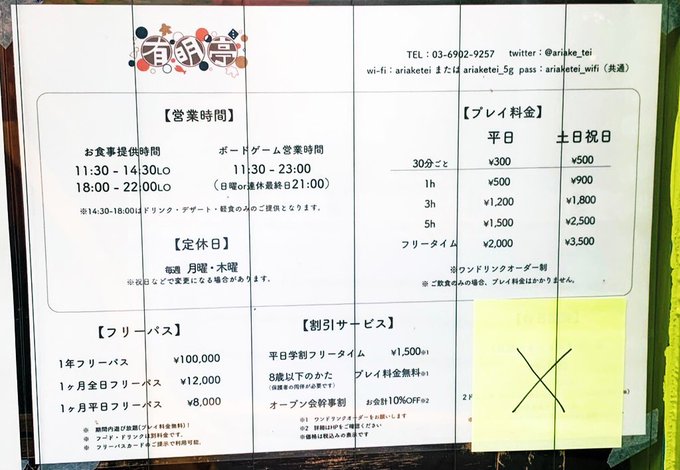 有明亭
TEL：03-6902-9257 twitter：@ariake_tei
wi-fi：ariaketei または ariaketei_5g pass：ariaketei_wifi（共通）
【営業時間】
お食事提供時間
11:30 – 14:30LO
18:00 – 22:00LO
ボードゲーム営業時間
11:30 – 23:00
（日曜or連休最終日21:00）
※14:30-18:00はドリンク・デザート・軽食のみのご提供となります。
【定休日】
毎週 月曜・木曜
※祝日などで変更になる場合があります。
【プレイ料金】
平日 土日祝日
30分ごと ¥300 ¥500
1h ¥500 ¥900
3h ¥1,200 ¥1,800
5h ¥1,500 ¥2,500
フリータイム ¥2,000 ¥3,500
※ワンドリンクオーダー制
※ご飲食のみの場合、プレイ料金はかかりません。
【フリーパス】
1年フリーパス ¥100,000
1ヶ月全日フリーパス ¥12,000
1ヶ月平日フリーパス ¥8,000
※ 期間内遊び放題(プレイ料金無料)！
※ フード・ドリンクは別料金です。
※ フリーパスカードのご提示で利用可能。
【割引サービス】
平日学割フリータイム ¥1,500※1
8歳以下のかた プレイ料金無料※1
（保護者の同伴が必要です）
オープン会幹事割 お会計10%OFF※2
※1 ワンドリンクオーダーをお願いします
※2 詳細はHPをご確認ください
※価格は税込みの表示です
2ド